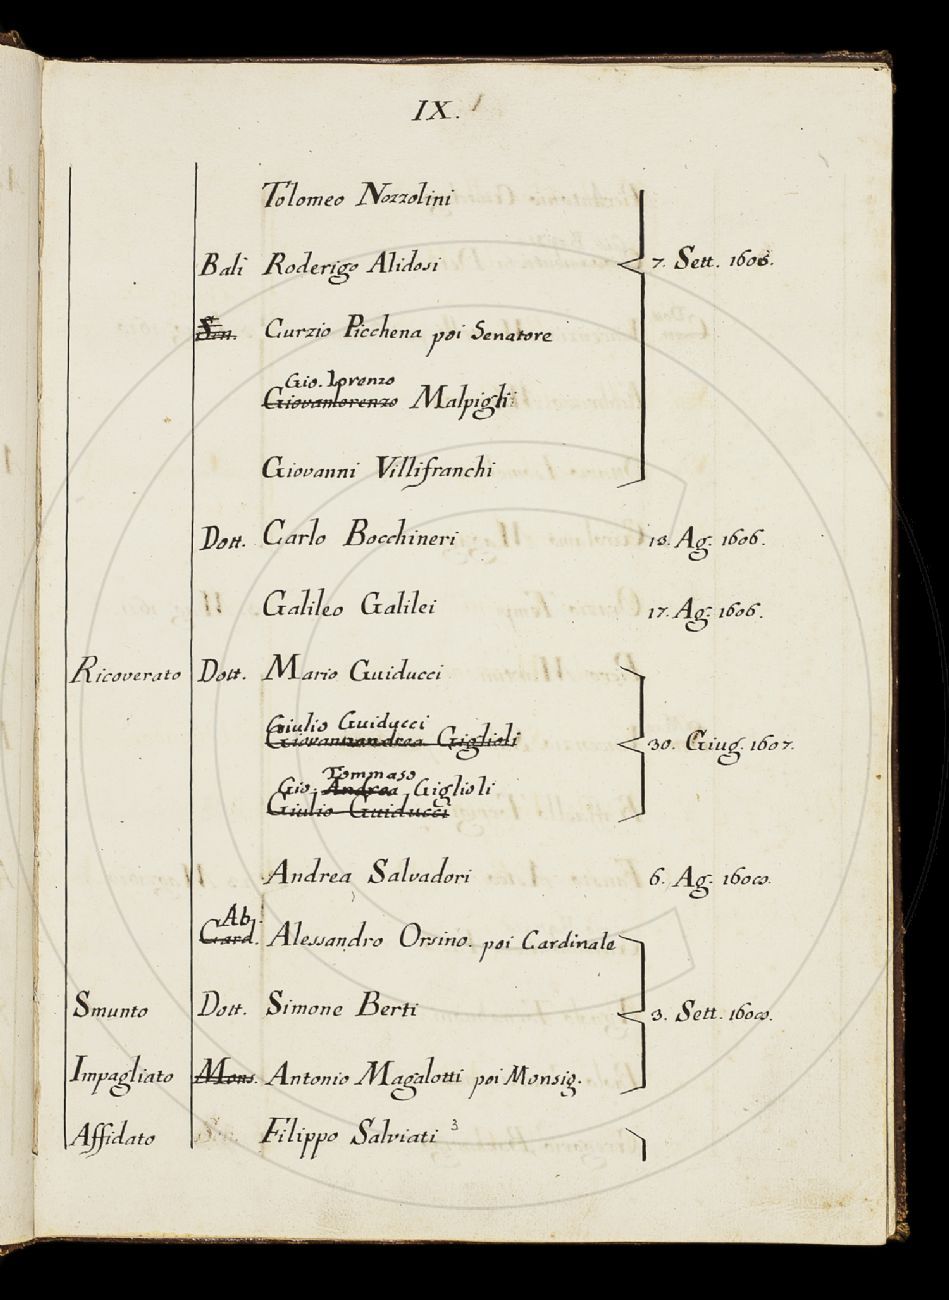 IX.
Tolomeo Nozzolini
Bali Roderigo Alidosi 7. Sett. 1606.
Sen. Curzio Picchena poi Senatore
Gio. Lorenzo
Giovanlorenzo Malpigli
Giovanni Villifranchi
Dott. Carlo Bocchineri 18. Ag. 1606.
Galileo Galilei 17. Ag. 1606.
Ricoverato Dott. Mario Guiducci
Giulio Guiducci
Giovannandrea Giglioli 30. Giug. 1607.
Tommaso
Gio. Andrea Giglioli
Giulio Guiducci
Andrea Salvadori 6. Ag. 160
Ab.
Card. Alessandro Orsino. poi Cardinale
Smunto Dott. Simone Berti 3. Sett. 160
Impagliato Mons. Antonio Magalotti poi Monsig.
Affidato Sen. Filippo Salviati 3